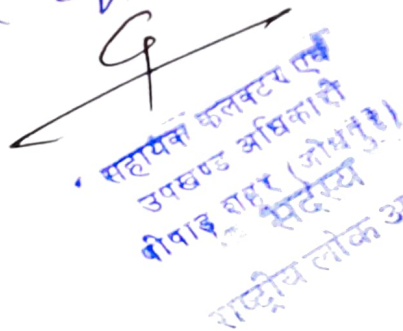 सहायक कलक्टर एवं
उपखण्ड अधिकारी
पीपाड़ शहर (जोधपुर)
सदस्य
राष्ट्रीय लोक अ